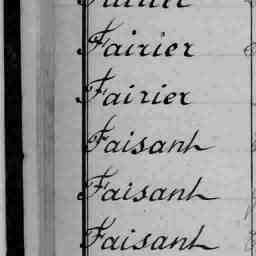 Fairier
Fairier
Faisant
Faisant
Faisant